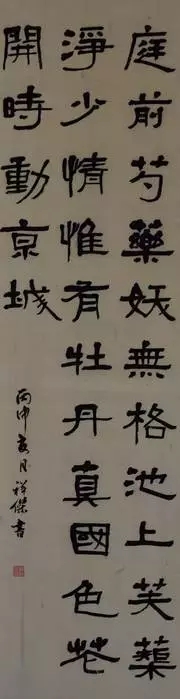 庭前芍藥妖無格池上芙蕖
淨少情惟有牡丹真國色花
開時動京城
丙申夏月祥傑書